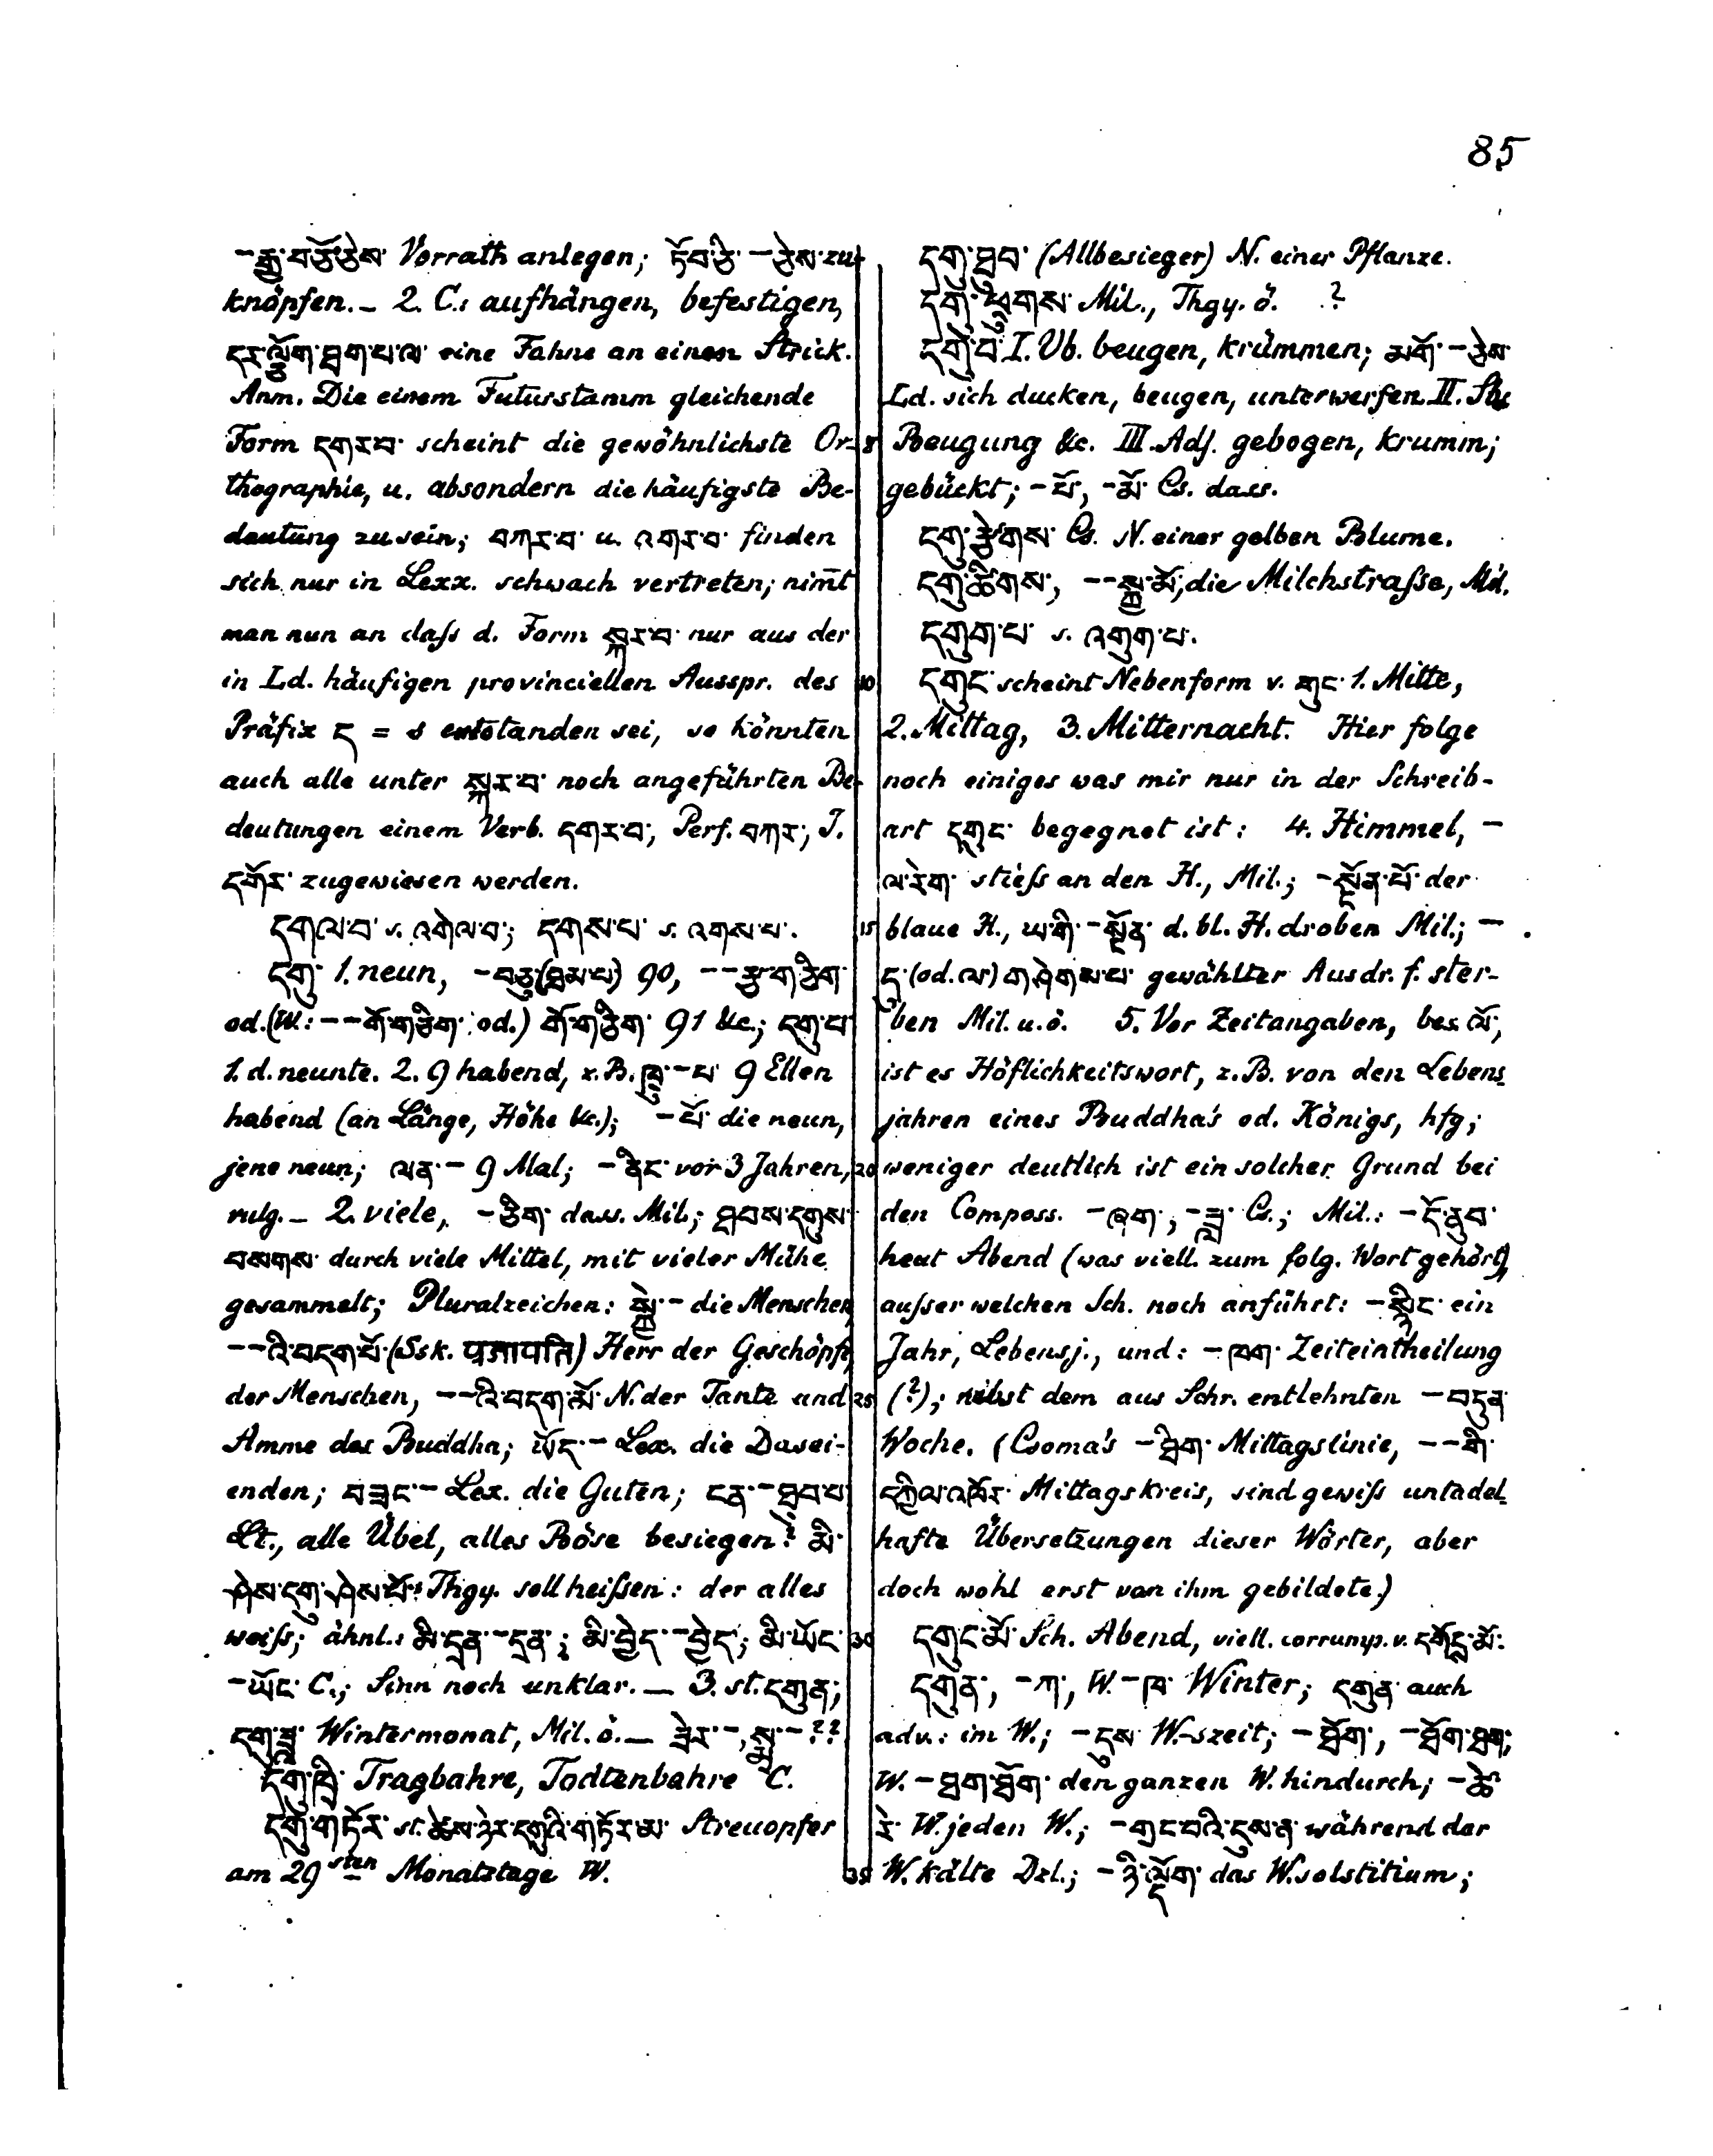 85
-རྒྱུ་བཅོ་ཅེས་ Vorrath anlegen; ཏོབ་ཅི་ -ཅེས་ zu-
knöpfen. – 2. C.: aufhängen, befestigen,
དར་ལྕོག་ཐག་པ་ལ་ eine Fahne an einen Strick.
Anm. Die einem Futurstamm gleichende
Form དགར་བ་ scheint die gewöhnlichste Or-
thographie, u. absondern die häufigste Be-
deutung zu sein; བཀར་བ་ u. འགར་བ་ finden
sich nur in Lexx. schwach vertreten; nim̄t
man nun an daſs d. Form སྐར་བ་ nur aus der
in Ld. häufigen provinciellen Ausspr. des
Präfix ད = s entstanden sei, so könnten
auch alle unter སྐར་བ་ noch angeführten Be-
deutungen einem Verb. དགར་བ་, Perf. བཀར་, I.
དགོར་ zugewiesen werden.
དགལ་བ་ s. འགེལ་བ་; དགས་པ་ s. འགས་པ་.
དགུ་ 1. neun, -བཅུ་(ཐམ་པ) 90, --རྩ་གཅིག་
od. (W.: --གོ་གཅིག་ od.) གོ་གཅིག་ 91 &c.; དགུ་པ་
1. d. neunte. 2. 9 habend, z. B. ཁྲུ་-པ་ 9 Ellen
habend (an Länge, Höhe &c.); -པོ་ die neun,
jene neun; ལན་- 9 Mal; -ནིང་ vor 3 Jahren,
vulg. – 2. viele, -ཅིག་ dass. Mil.; ཐབས་དགུས་
བསགས་ durch viele Mittel, mit vieler Mühe
gesammelt; Pluralzeichen: སྐྱེ་- die Menschen,
--འི་བདག་པོ་ (Ssk. प्रजापति) Herr der Geschöpfe,
der Menschen, --འི་བདག་མོ་ N. der Tante und
Amme des Buddha; ཡོད་- Lex. die Dasei-
enden; བཟང་- Lex. die Guten; ངན་-ཐབ་པ་
Lt., alle Übel, alles Böse besiegen? མི་
ཤེས་དགུ་ཤེས་པོ་ Thgy. soll heiſsen: der alles
weiſs; ähnl.: མི་དྲན་-དྲན་; མི་བྱེད་-བྱེད་; མི་ཡོང་
-ཡོང་ C.; Sinn noch unklar. – 3. st. དགུན་;
དགུ་ཟླ་ Wintermonat, Mil. ö. – ཟེར་-, སྨྲ་-??
དགུ་ཁྲི་ Tragbahre, Todtenbahre C.
དགུ་གཏོར་ st. ཚེས་ཉེར་དགུའི་གཏོར་མ་ Streuopfer
am 29sten Monatstage W.
དགུ་ཐུབ་ (Allbesieger) N. einer Pflanze.
Mil., Thgy. ö. ?
དགུ་བ་ I. Vb. beugen, krümmen; མགོ་-ཅེས་
Ld. sich ducken, beugen, unterwerfen. II. Sbs.
5 Beugung &c. III. Adj. gebogen, krumm;
gebückt; -པོ་, -མོ་ Cs. dass.
Cs. N. einer gelben Blume.
དགུ་ཚིགས་, --སྐྱ་མོ་; die Milchstraſse, Mil.
དགུག་པ་ s. འགུག་པ་.
10 དགུང་ scheint Nebenform v. གུང་ 1. Mitte,
2. Mittag, 3. Mitternacht. Hier folge
noch einiges was mir nur in der Schreib-
art དགུང་ begegnet ist: 4. Himmel, -
ལ་རེག་ stieſs an den H., Mil.; -སྔོན་པོ་ der
15 blaue H., ཡ་གི་-སྔོན་ d. bl. H. droben Mil.; -
དུ་ (od. ལ་) གཤེགས་པ་ gewählter Ausdr. f. ster-
ben Mil. u. ö. 5. Vor Zeitangaben, bes. ལོ་,
ist es Höflichkeitswort, z. B. von den Lebens-
jahren eines Buddha's od. Königs, hfg;
20 weniger deutlich ist ein solcher Grund bei
den Composs. -ཞག་, -ཟླ་ Cs.; Mil.: -དོ་ནུབ་
heut Abend (was viell. zum folg. Wort gehört),
auſser welchen Sch. noch anführt: ein
Jahr, Lebensj., und: -ཁག་ Zeiteintheilung
25 (?); nebst dem aus Schr. entlehnten -བདུན་
Woche. (Csoma's -ཐིག་ Mittagslinie, --གི་
དཀྱིལ་འཁོར་ Mittagskreis, sind gewiſs untadel-
hafte Übersetzungen dieser Wörter, aber
doch wohl erst von ihm gebildete.)
30 དགུང་མོ་ Sch. Abend, viell. corrump. v. དགོང་མོ་.
དགུན་, -ཀ་, W. -ཁ་ Winter; དགུན་ auch
adv.: im W.; -དུས་ W.-szeit; -ཐོག་, -ཐོག་ཐག་;
W. -ཐག་ཐོག་ den ganzen W. hindurch; -ཚེ་
རེ་ W. jeden W.; -གྲང་བའི་དུས་ན་ während der
35 W. kälte Dzl.; -ཉི་ལྡོག་ das W.solstitium;